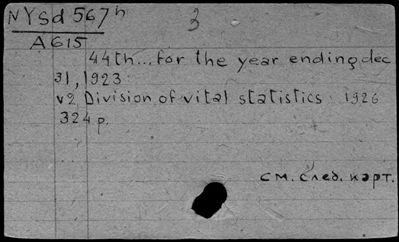 NYSd 567h
3
A615
44th... for the year ending dec
31, 1923.
v2 Division of vital statistics 1926
324 p.
см. след. карт.